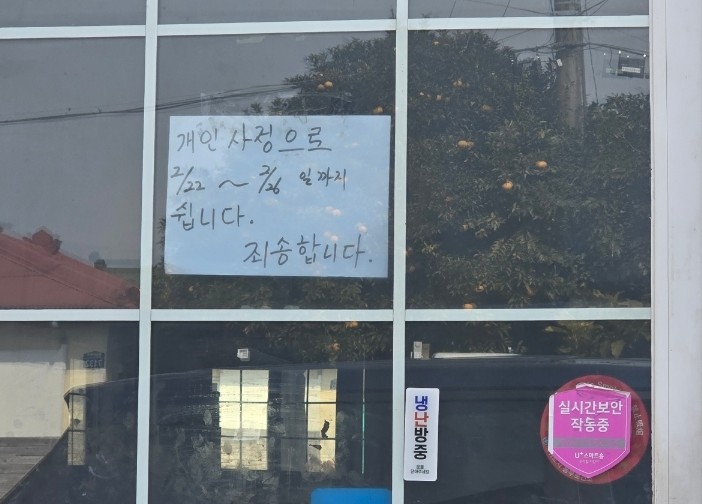 개인 사정으로
2/22 ~ 2/26 일까지
쉽니다.
죄송합니다.
냉난방중
실시간보안
작동중
U+스마트홈